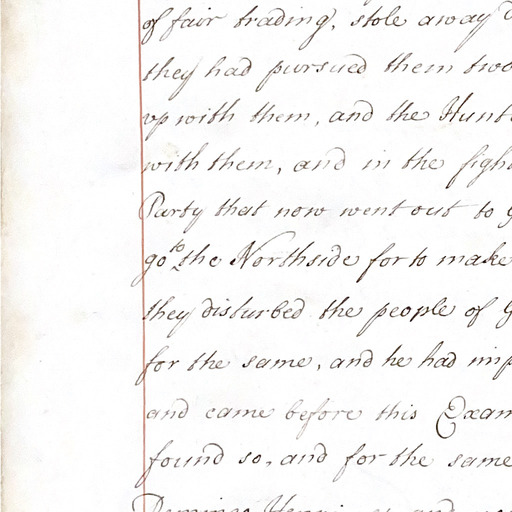 of fair trading, stole away
they had pursued them two
up with them, and the Hunt
with them, and in the figh
Party that now went out to g
go to the Northside for to make
they disturbed the people of G
for the same, and he had imp
and came before this Exam
found so, and for the same
Domingo Henri